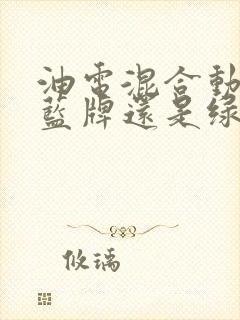 油電混合動
藍牌還是綠
攸瑀